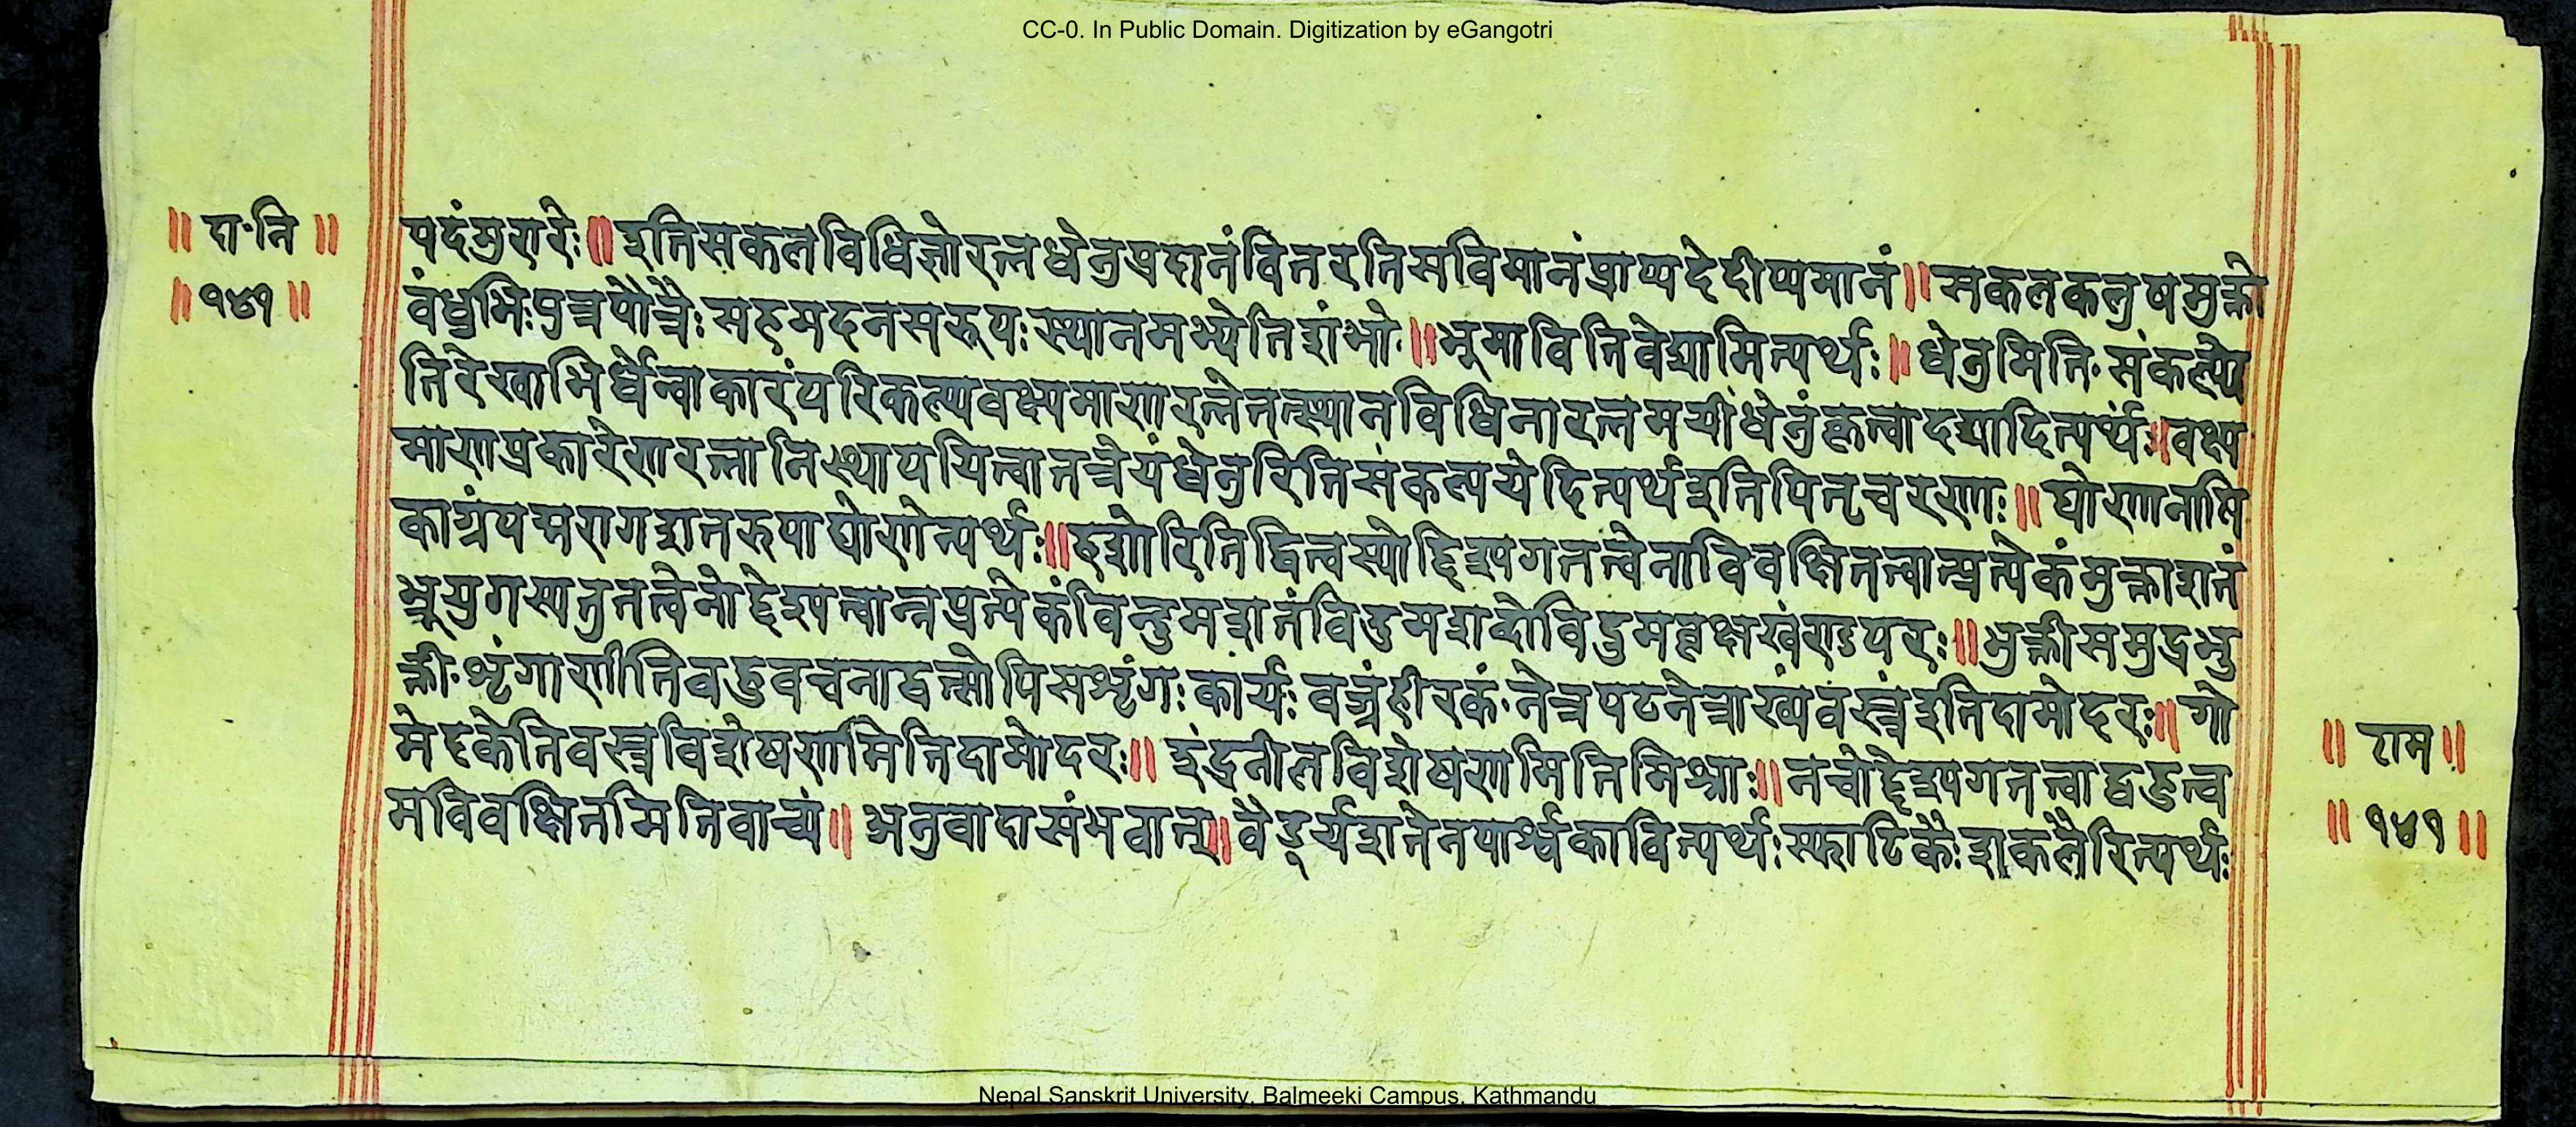 CC-0. In Public Domain. Digitization by eGangotri
॥ दा॰नि ॥
॥ १४१ ॥
पदंमुरारेः ॥ इतिसकलविधिज्ञोरत्नधेनुप्रदानंवितरतिसविमानंप्राप्यदेदीप्यमानं ॥ सकलकलुषमुक्तो
वंधुभिःपुत्रपौत्रैः सहमदनसरूपः स्थानमभ्येतिशंभोः ॥ भूमावितिवेद्यामित्यर्थः ॥ धेनुमिति॰संकल्प्ये
तिरेखाभिर्धेन्वाकारंपरिकल्प्यवक्ष्यमाणरत्नेतत्स्थानविधिनारत्नमयींधेनुंकृत्वादद्यादित्यर्थः ॥ वक्ष्य
माणप्रकारेणरत्नानिस्थापयित्वातत्रेयंधेनुरितिसंकल्पयेदित्यर्थइतिपितृचरणाः ॥ घोरणनासि
काग्रंपद्मरागशतरुपाघोणेत्यर्थः ॥ दृशोरितिद्वित्वस्योद्दिश्यगतत्वेनाविवक्षितत्वात्प्रत्येकंमुक्ताशतं
भ्रूयुगस्यतुतत्वेनोद्देश्यत्वान्नप्रत्येकंविन्दुमशतंविद्रुमशब्दोविद्रुमवृक्षखंडपरः ॥ भुक्तीसमुद्रभु
क्ती॰शृंगाणीतिबहुवचनाद्वत्सोपिसशृंगः कार्यः वज्रंहीरकं॰नेत्रपटनेत्राख्यंवस्त्रंइतिदामोदरः ॥ गो
मेदकेतिवस्त्रविशेषणमितिदामोदरः ॥ इंद्रनीलविशेषणमितिमिश्राः ॥ नचोद्देश्यगतत्वाद्बहुत्व
मविवक्षितमितिवाच्यं ॥ अनुवादासंभवात् ॥ वैडूर्यशतेनपार्श्वकावित्यर्थः स्फाटिकैः शकलैरित्यर्थः
॥ राम ॥
॥ १४१ ॥
Nepal Sanskrit University, Balmeeki Campus, Kathmandu